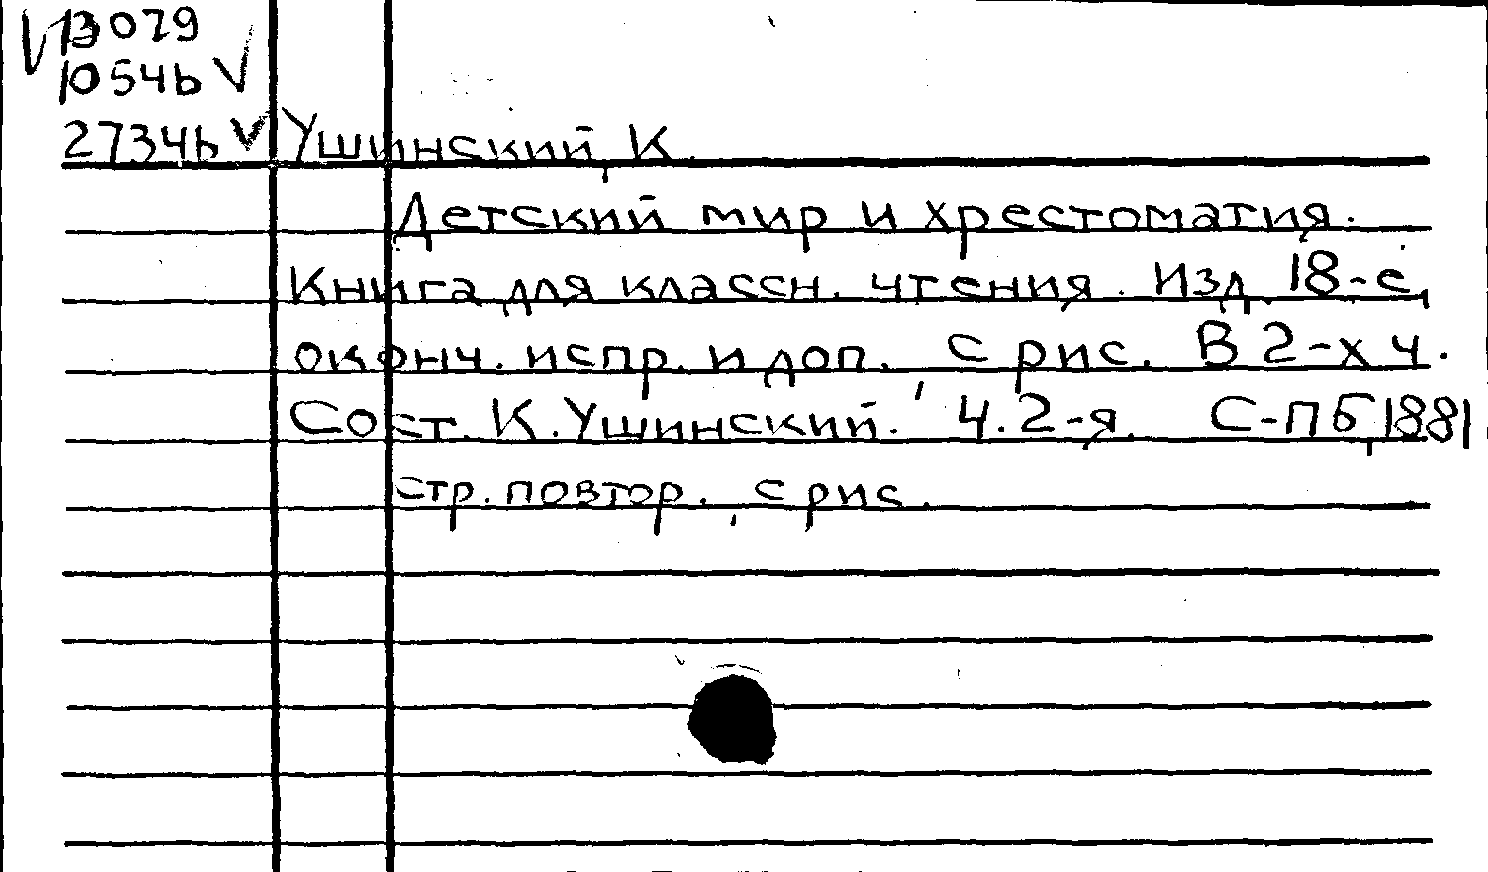 13079
1054b
2734b Ушинский, К.
Детский мир и хрестоматия.
Книга для классн. чтения. Изд. 18-е,
оконч. испр. и доп. С рис. В 2-х ч.
Сост. К. Ушинский. Ч. 2-я. С-Пб, 1881
стр. повтор., с рис.